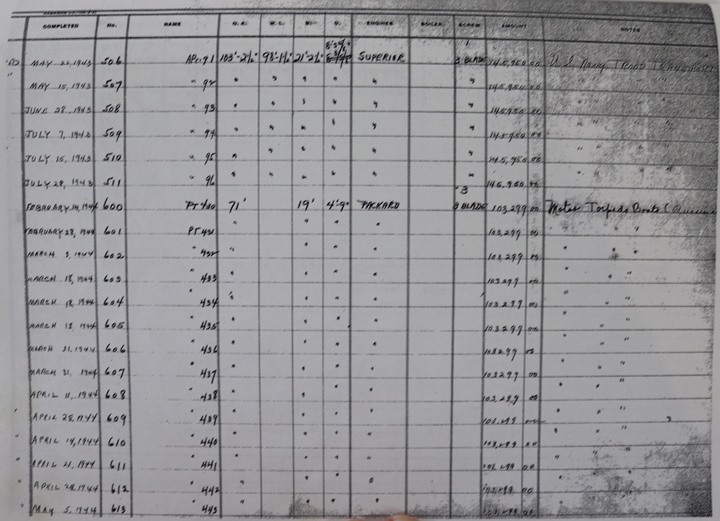 COMPLETED No. NAME O.A. W.L. B. D. ENGINES BOILER SCREW AMOUNT NOTES
MAY 22, 1943 506 APc 91 103'-2½" 98'-1½" 21'-2½" SUPERIOR 3 BLADE 145,950 00 U.S. Navy
MAY 15, 1943 507 " 92 " " " " " " 145,950 00 " "
JUNE 28, 1943 508 " 93 " " " " " " 145,950 00 " "
JULY 7, 1943 509 " 94 " " " " " " 145,950 00 " "
JULY 15, 1943 510 " 95 " " " " " " 145,950 00 " "
JULY 28, 1943 511 " 96 " " " " " " 145,950 00
3
FEBRUARY 14, 1944 600 PT 430 71' 19' 4'-9" PACKARD 3 BLADE 103,299 00 Motor Torpedo Boats
FEBRUARY 28, 1944 601 PT 431 " " " 103,299 00 " "
MARCH 3, 1944 602 " 432 " " " " 103,299 00 " " "
MARCH 18, 1944 603 " 433 " " " " 103,299 00 " "
MARCH 18, 1944 604 " 434 " " " " 103,299 00 " "
MARCH 18, 1944 605 " 435 " " " " 103,299 00 " "
MARCH 31, 1944 606 " 436 " " " " 103,299 00 " "
MARCH 31, 1944 607 " 437 " " " " 103,299 00 " " "
APRIL 11, 1944 608 " 438 " " " " 103,299 00 " " "
APRIL 25, 1944 609 " 439 " " " " 103,299 " " "
APRIL 14, 1944 610 " 440 " " " " 103,299 00 " " "
APRIL 21, 1944 611 " 441 " " " " 103,299 00 " " "
APRIL 28, 1944 612 " 442 " " " " 103,299 00 " " "
MAY 5, 1944 613 " 443 " " " " 103,299 00 " " "